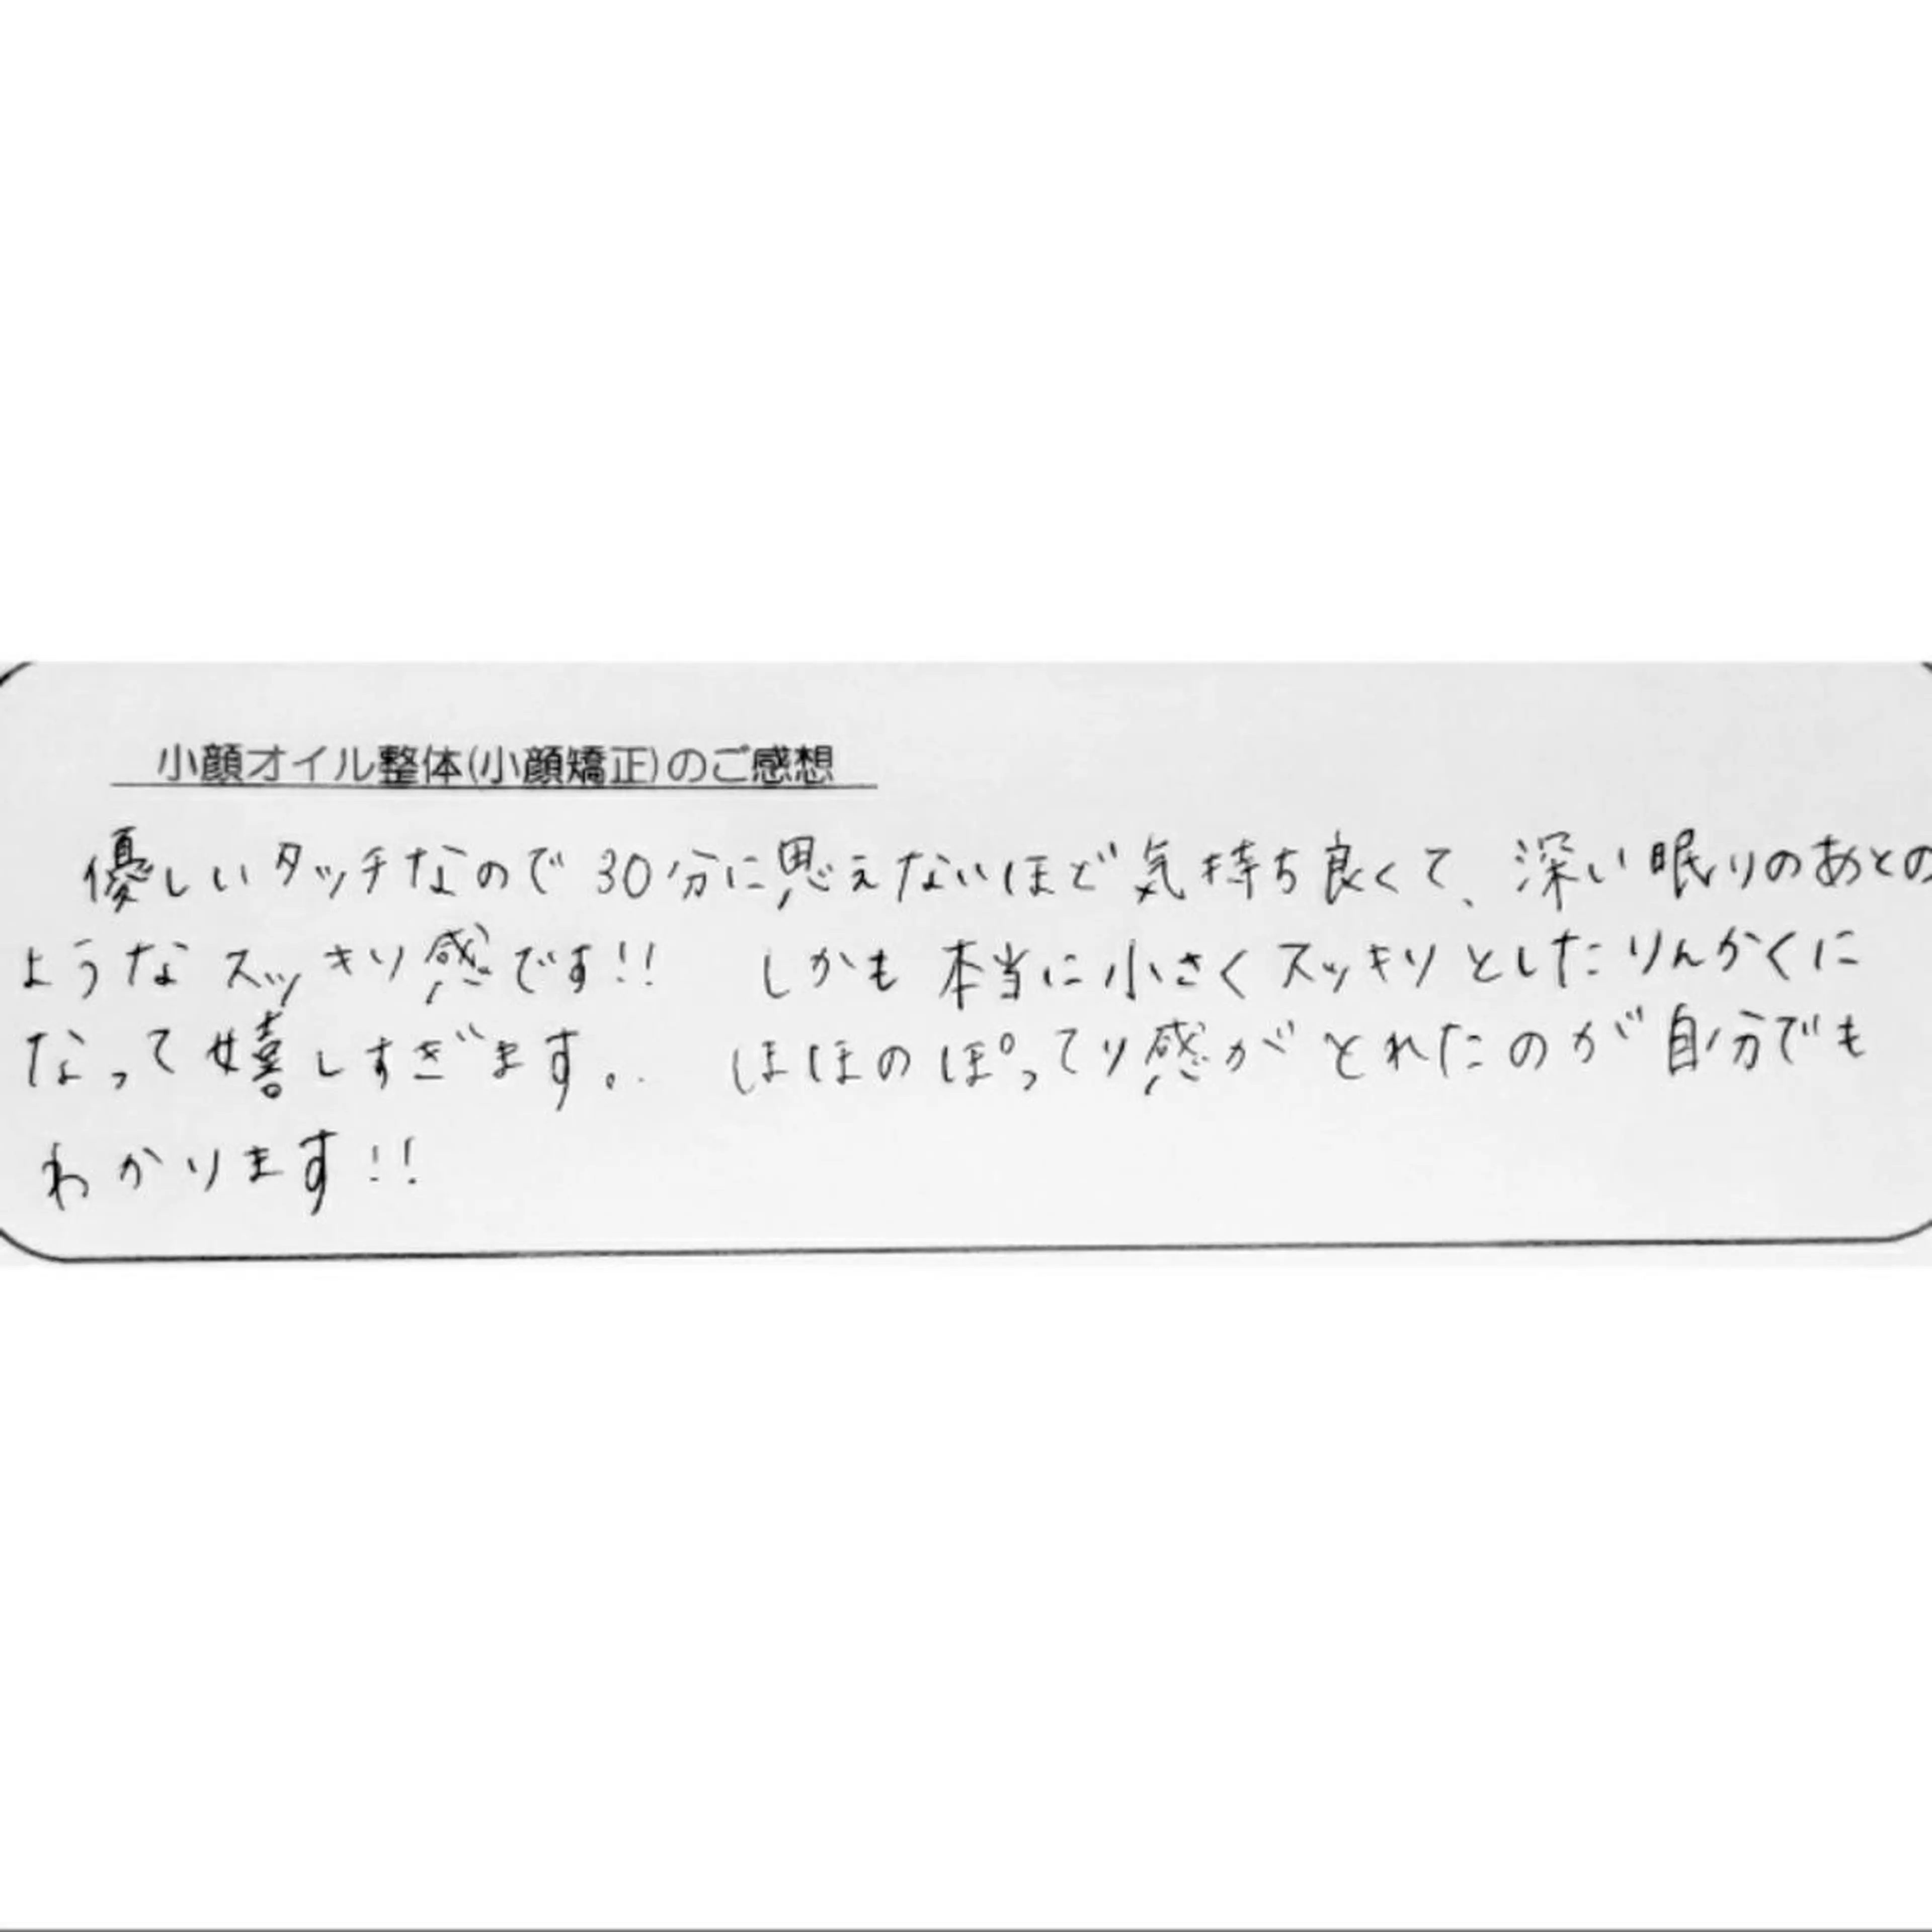 小顔オイル整体(小顔矯正)のご感想
優しいタッチなので30分に思えないほど気持ち良くて、深い眠りのあとの
ようなスッキリ感です!! しかも本当に小さくスッキリとしたりんかくに
なって嬉しすぎます。. ほほのぽってり感がとれたのが自分でも
わかります!!